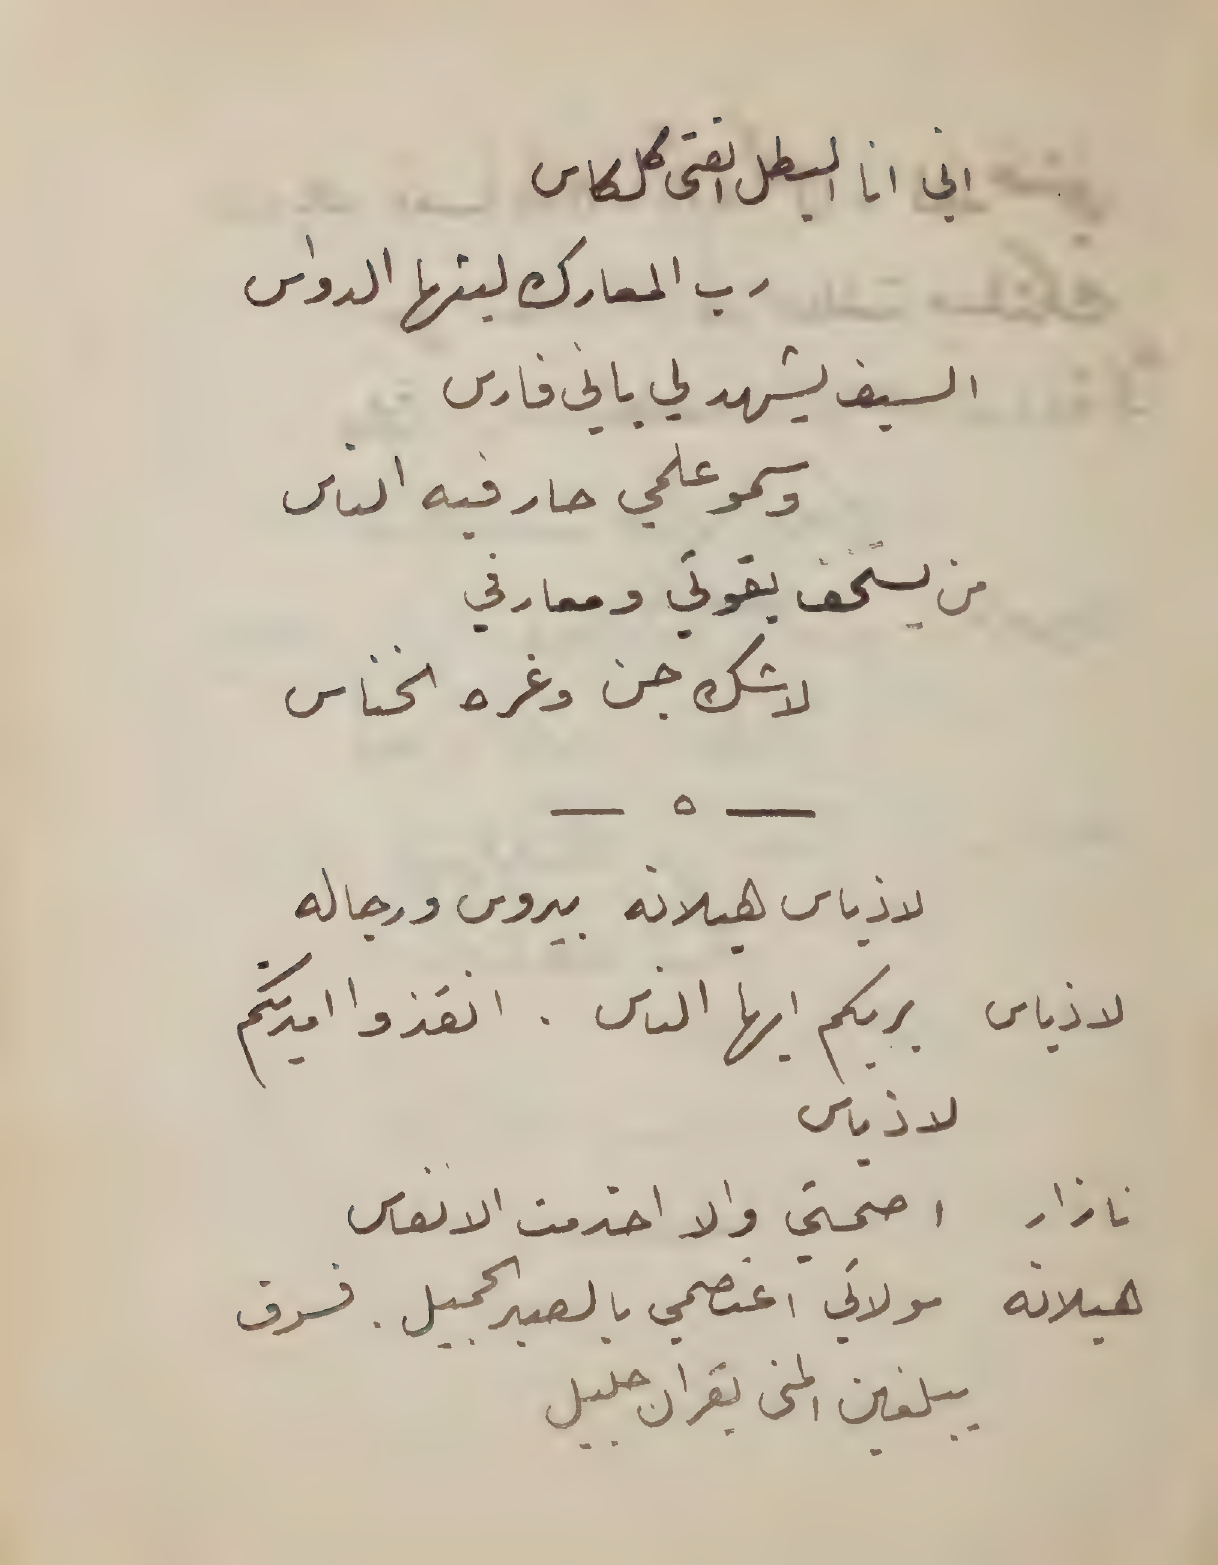 اني انا البطل الفتى كلكاس
رب المعارك ليثها الدواس
السيف يشهد لي باني فارس
وسمو علمي حار فيه الناس
من يستخف بقوتي ومعارفي
لاشك جن وغره الخناس
— ه —
لاذياس هيلانه بيروس ورجاله
لاذياس بربكم ايها الناس . انقذوا اميرتكم
لاذياس
نازار اصمتي والا اخذمت الانفاس
هيلانه مولاتي اعتصمي بالصبر الجميل . فسوف
يبلغن المنى بقران جليل